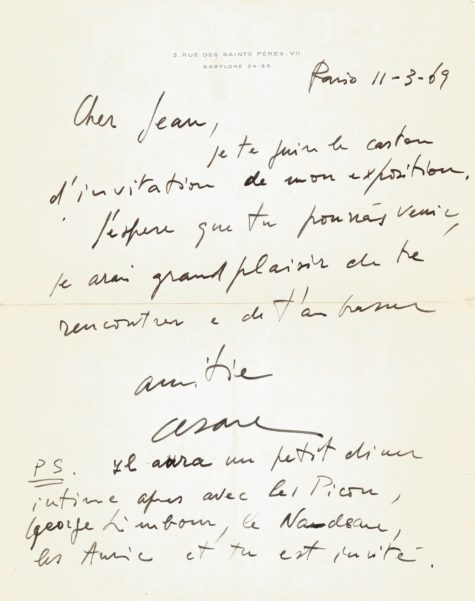 3, RUE DES SAINTS PÈRES-VII
BABYLONE 24-86
Paris 11-3-69
Cher Jean,
je te juin le carton
d'invitation de mon exposition.
J'espere que tu pourras venir,
je arai grand plaisir de te
rencontrer e de t'ambrasser
amitie
Cesare
PS. Il aura un petit diner
intime apres avec les Picon,
George Limbour, le Nadeau,
les Auric et tu est invité.